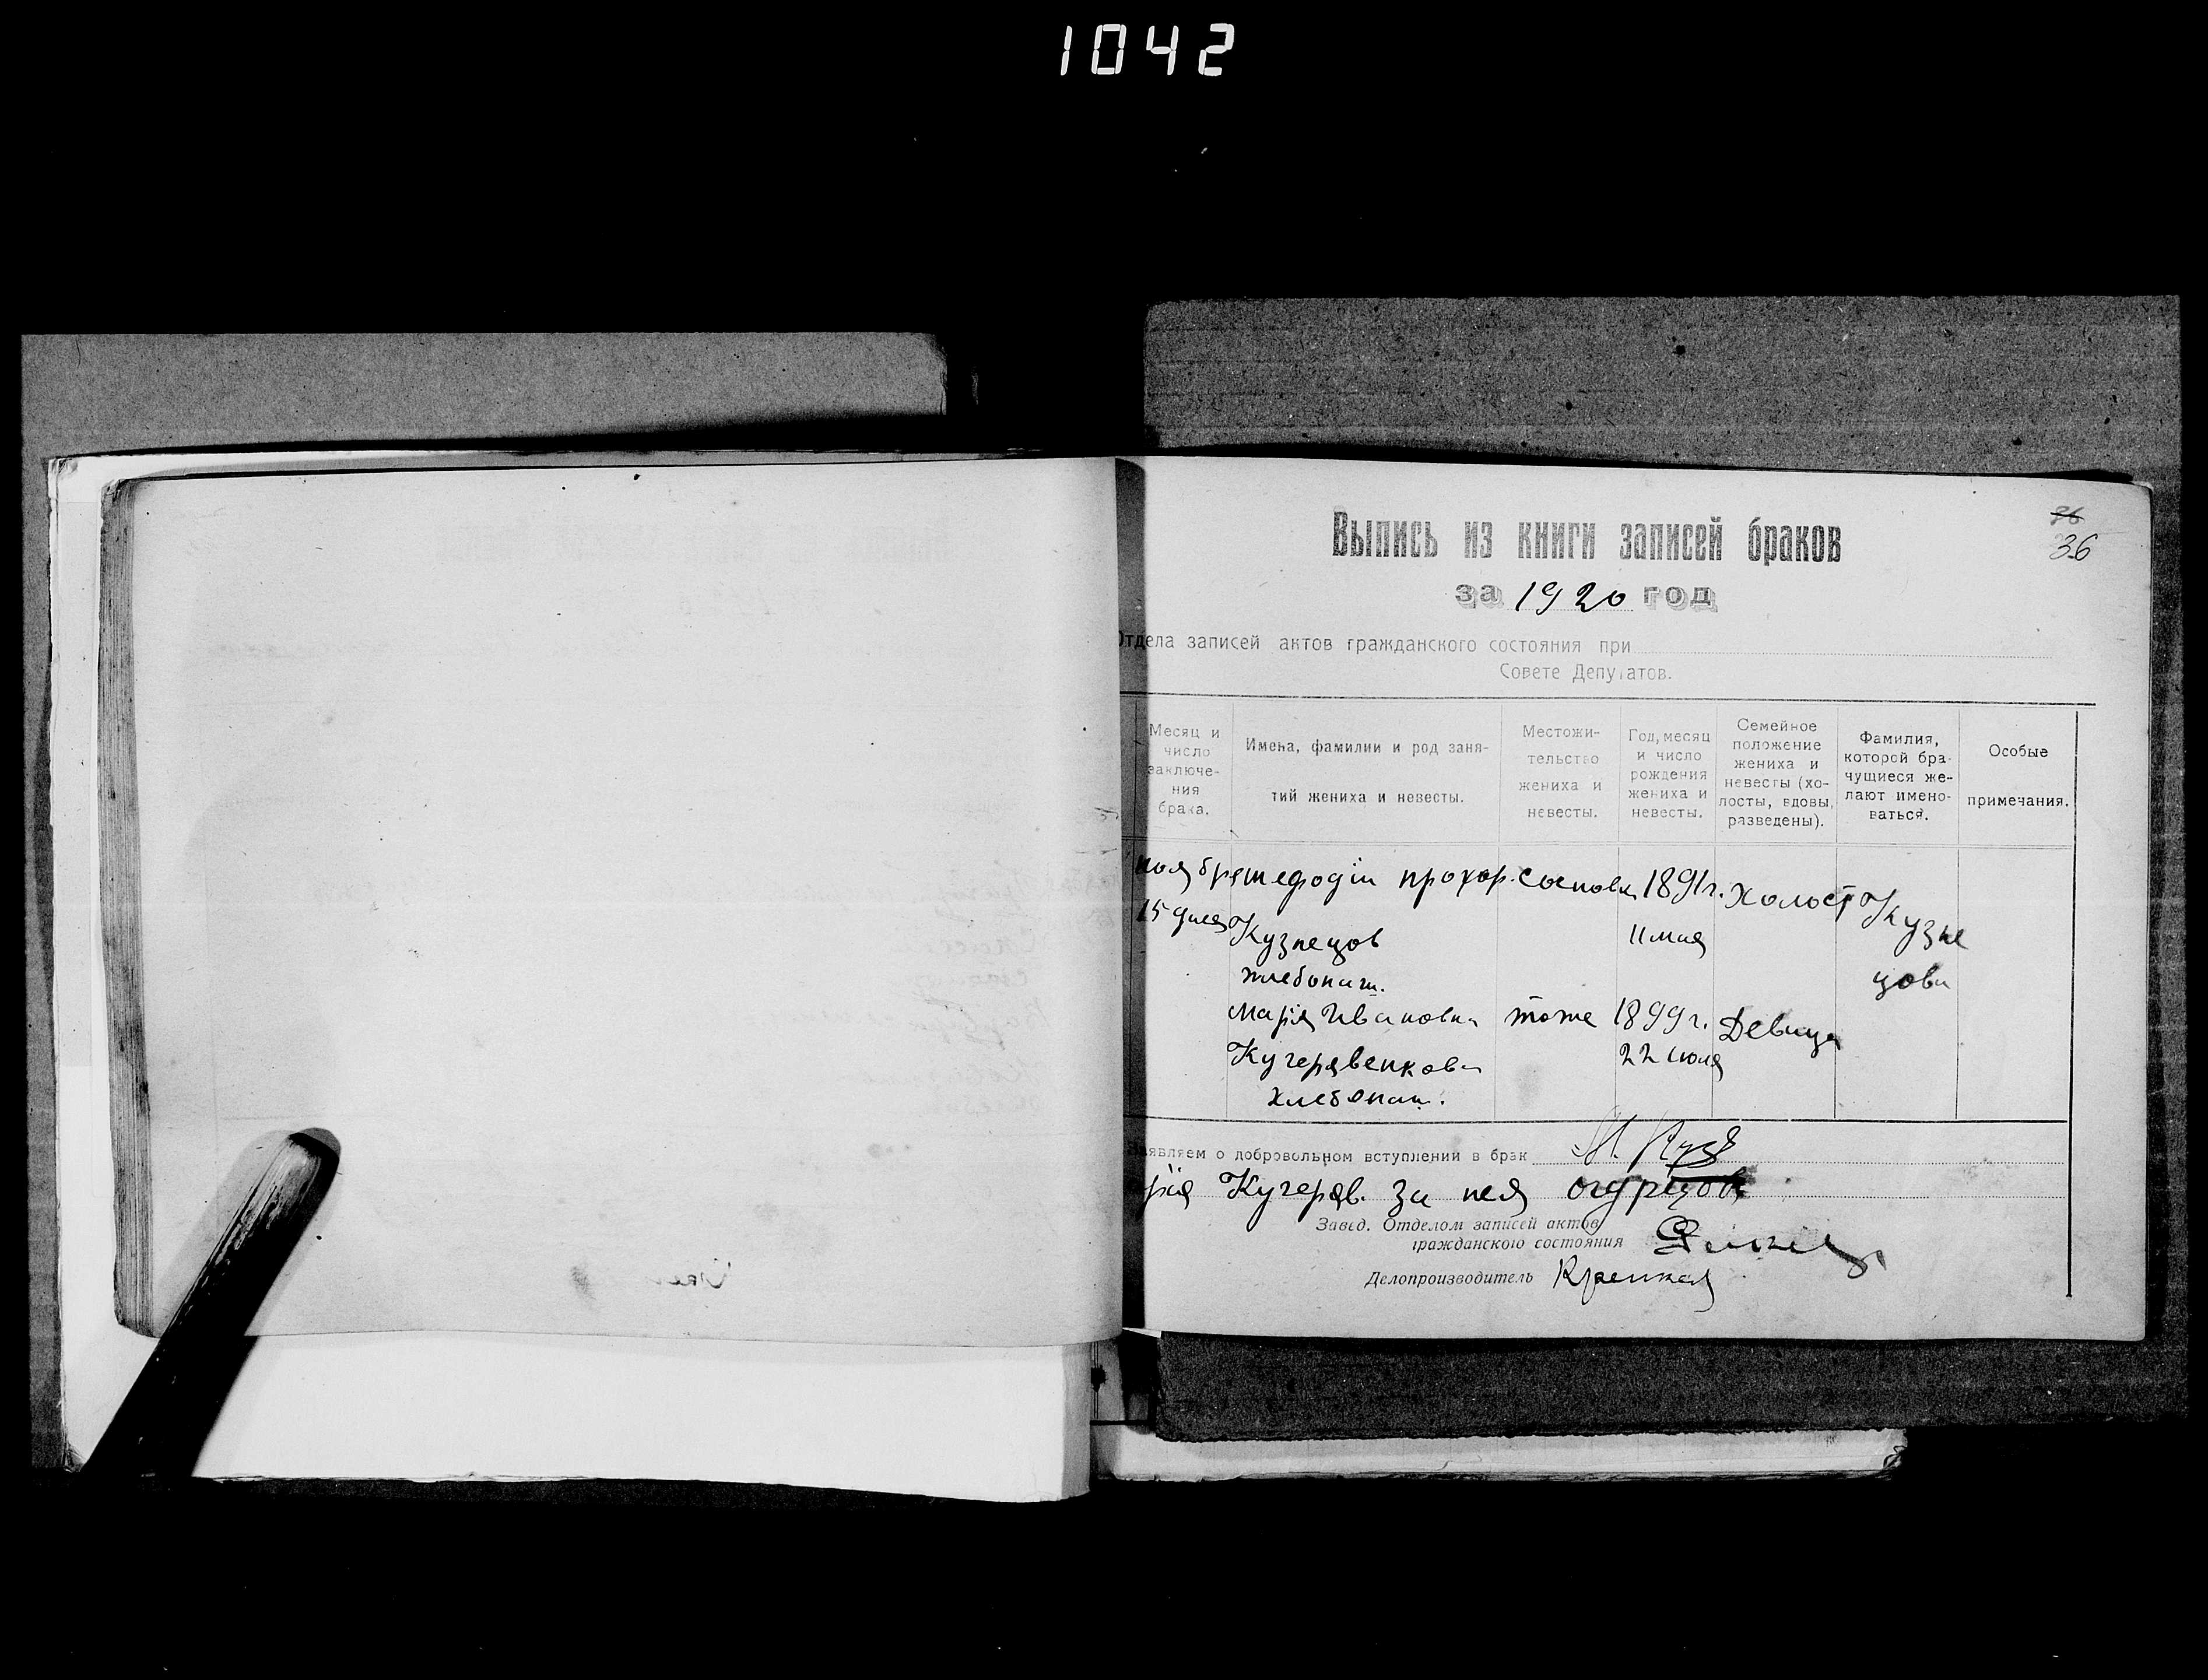 1042
36
36
Выпись из книги записей браков
за 1920 год
Отдела записей актов гражданского состояния при
Совете Депутатов.
Месяц и число заключе- ния брака.
Имена, фамилии и род заня- тий жениха и невесты.
Местожи- тельство жениха и невесты.
Год, месяц и число рождения жениха и невесты.
Семейное положение жениха и невесты (хо- лосты, вдовы, разведены).
Фамилия, которой бра- чущиеся же- лают имено- ваться.
Особые примечания.
ноября мефодій прохор. 1891г. Холост Кузне
15 дня Кузнецов 11 мая
цова
хлебопаш.
Марія Ивановна тоже 1899г. Девица
Кучерявенкова 22 июля
хлебопаш.
Заявляем о добровольном вступлении в брак М.
рія Куреряв. за нея огурцов
Завед. Отделом записей актов
гражданского состояния
Делопроизводитель